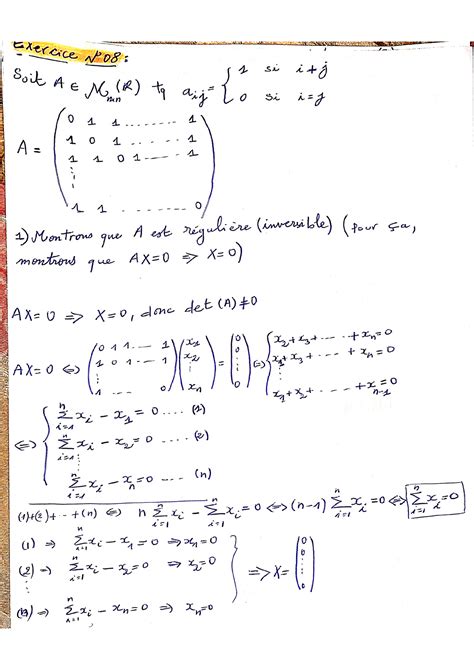 Exercice N°08:
Soit A ∈ Mₙₙ(R) tq aᵢⱼ = { 1 si i≠j
0 si i=j
A = ( 0 1 1 ........ 1
1 0 1 ..... 1
1 1 0 1 ---- 1
⋮
1 1 ........ 0 )
1) Montrons que A est régulière (inversible) (pour ça,
montrons que AX=0 ⇒ X=0)
AX=0 ⇒ X=0, donc det(A)≠0
AX=0 ⇔ ( 0 1 1 ... 1 ; 1 0 1 ... 1 ; ⋮ ; 1 ... 0 ) ( x₁ ; x₂ ; ⋮ ; xₙ ) = ( 0 ; 0 ; ⋮ ; 0 ) ⇔ { x₂+x₃+ ... +xₙ=0
x₁+x₃+ ... +xₙ=0
⋮
x₁+x₂+ ... +xₙ₋₁=0
⇔ { ∑ᵢ₌₁ⁿ xᵢ - x₁ = 0 .... (1)
∑ᵢ₌₁ⁿ xᵢ - x₂ = 0 .... (2)
⋮
∑ᵢ₌₁ⁿ xᵢ - xₙ = 0 .... (n)
(1)+(2)+...+(n) ⇔ n ∑ᵢ₌₁ⁿ xᵢ - ∑ᵢ₌₁ⁿ xᵢ = 0 ⇔ (n-1) ∑ᵢ₌₁ⁿ xᵢ = 0 ⇔ ∑ᵢ₌₁ⁿ xᵢ = 0
(1) ⇒ ∑ᵢ₌₁ⁿ xᵢ - x₁ = 0 ⇒ x₁=0
(2) ⇒ ∑ᵢ₌₁ⁿ xᵢ - x₂ = 0 ⇒ x₂=0
⇒ X = ( 0 ; 0 ; ⋮ ; 0 )
(n) ⇒ ∑ᵢ₌₁ⁿ xᵢ - xₙ = 0 ⇒ xₙ=0